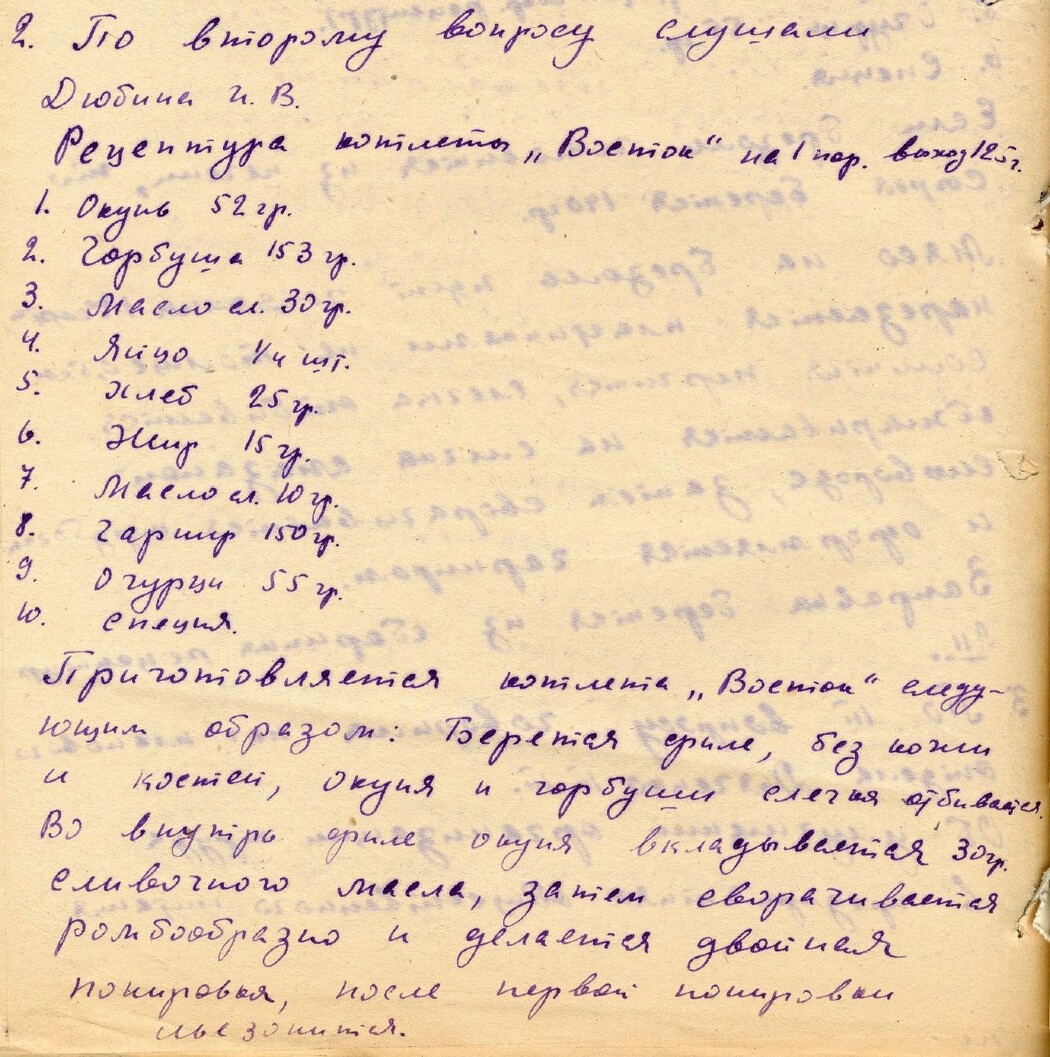 2. По второму вопросу слушали
Дюбина И. В.
Рецептура котлеты „Восток“ на 1 пор. выход 125 г.
1. Окунь 52 гр.
2. Горбуша 153 гр.
3. Масло сл. 30 гр.
4. Яйцо 1/4 шт.
5. Хлеб 25 гр.
6. Жир 15 гр.
7. Масло сл. 10 гр.
8. Гарнир 150 гр.
9. Огурцы 55 гр.
10. Специя.
Приготовляется котлета „Восток“ следу-
ющим образом: Берется филе, без кожи
и костей, окуня и горбуши слегка отбивается.
Во внутрь филе окуня вкладывается 30 гр.
сливочного масла, затем сворачивается
ромбообразно и делается двойная
понировка, после первой понировки
льезонится.